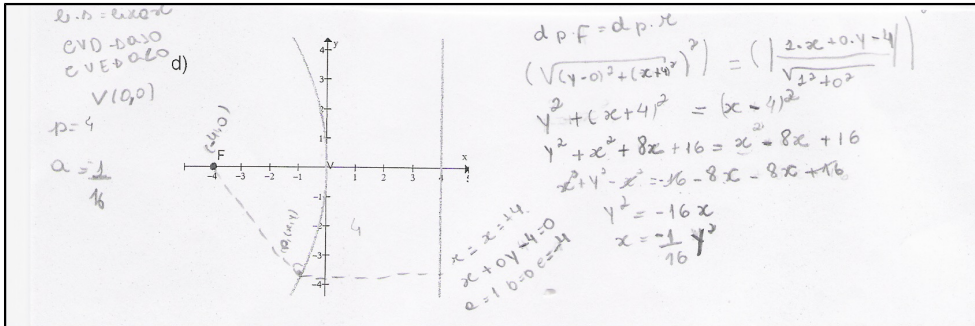 e.s = eixo x
CVD → a>0
CVE → a<0
d)
V(0,0)
p = 4
a = -1/16
(-4,0)
F
V
y
x
4
3
2
1
-1
-2
-3
-4
-4 -3 -2 -1 1 2 3 4
P(x,y)
4
x + 0y - 4 = 0
a = 1 b = 0 c = -4
d p.F = d p.r
(√((y-0)² + (x+4)²))² = (|1.x + 0.y - 4| / √(1² + 0²))²
y² + (x+4)² = (x-4)²
y² + x² + 8x + 16 = x² - 8x + 16
x² + y² - x² = -16 - 8x - 8x + 16
y² = -16x
x = -1/16 y²